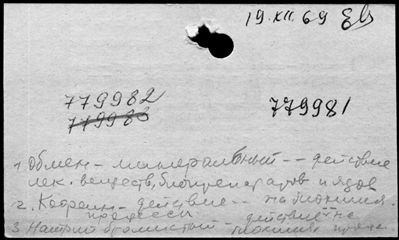 19.XII.69
779982
779983
779981
1 Обмен - минеральный -- действие
лек. веществ, биопрепаратов и ядов
2. Кофеин - действие --
процессы
3 Натрий бромистый - действие на